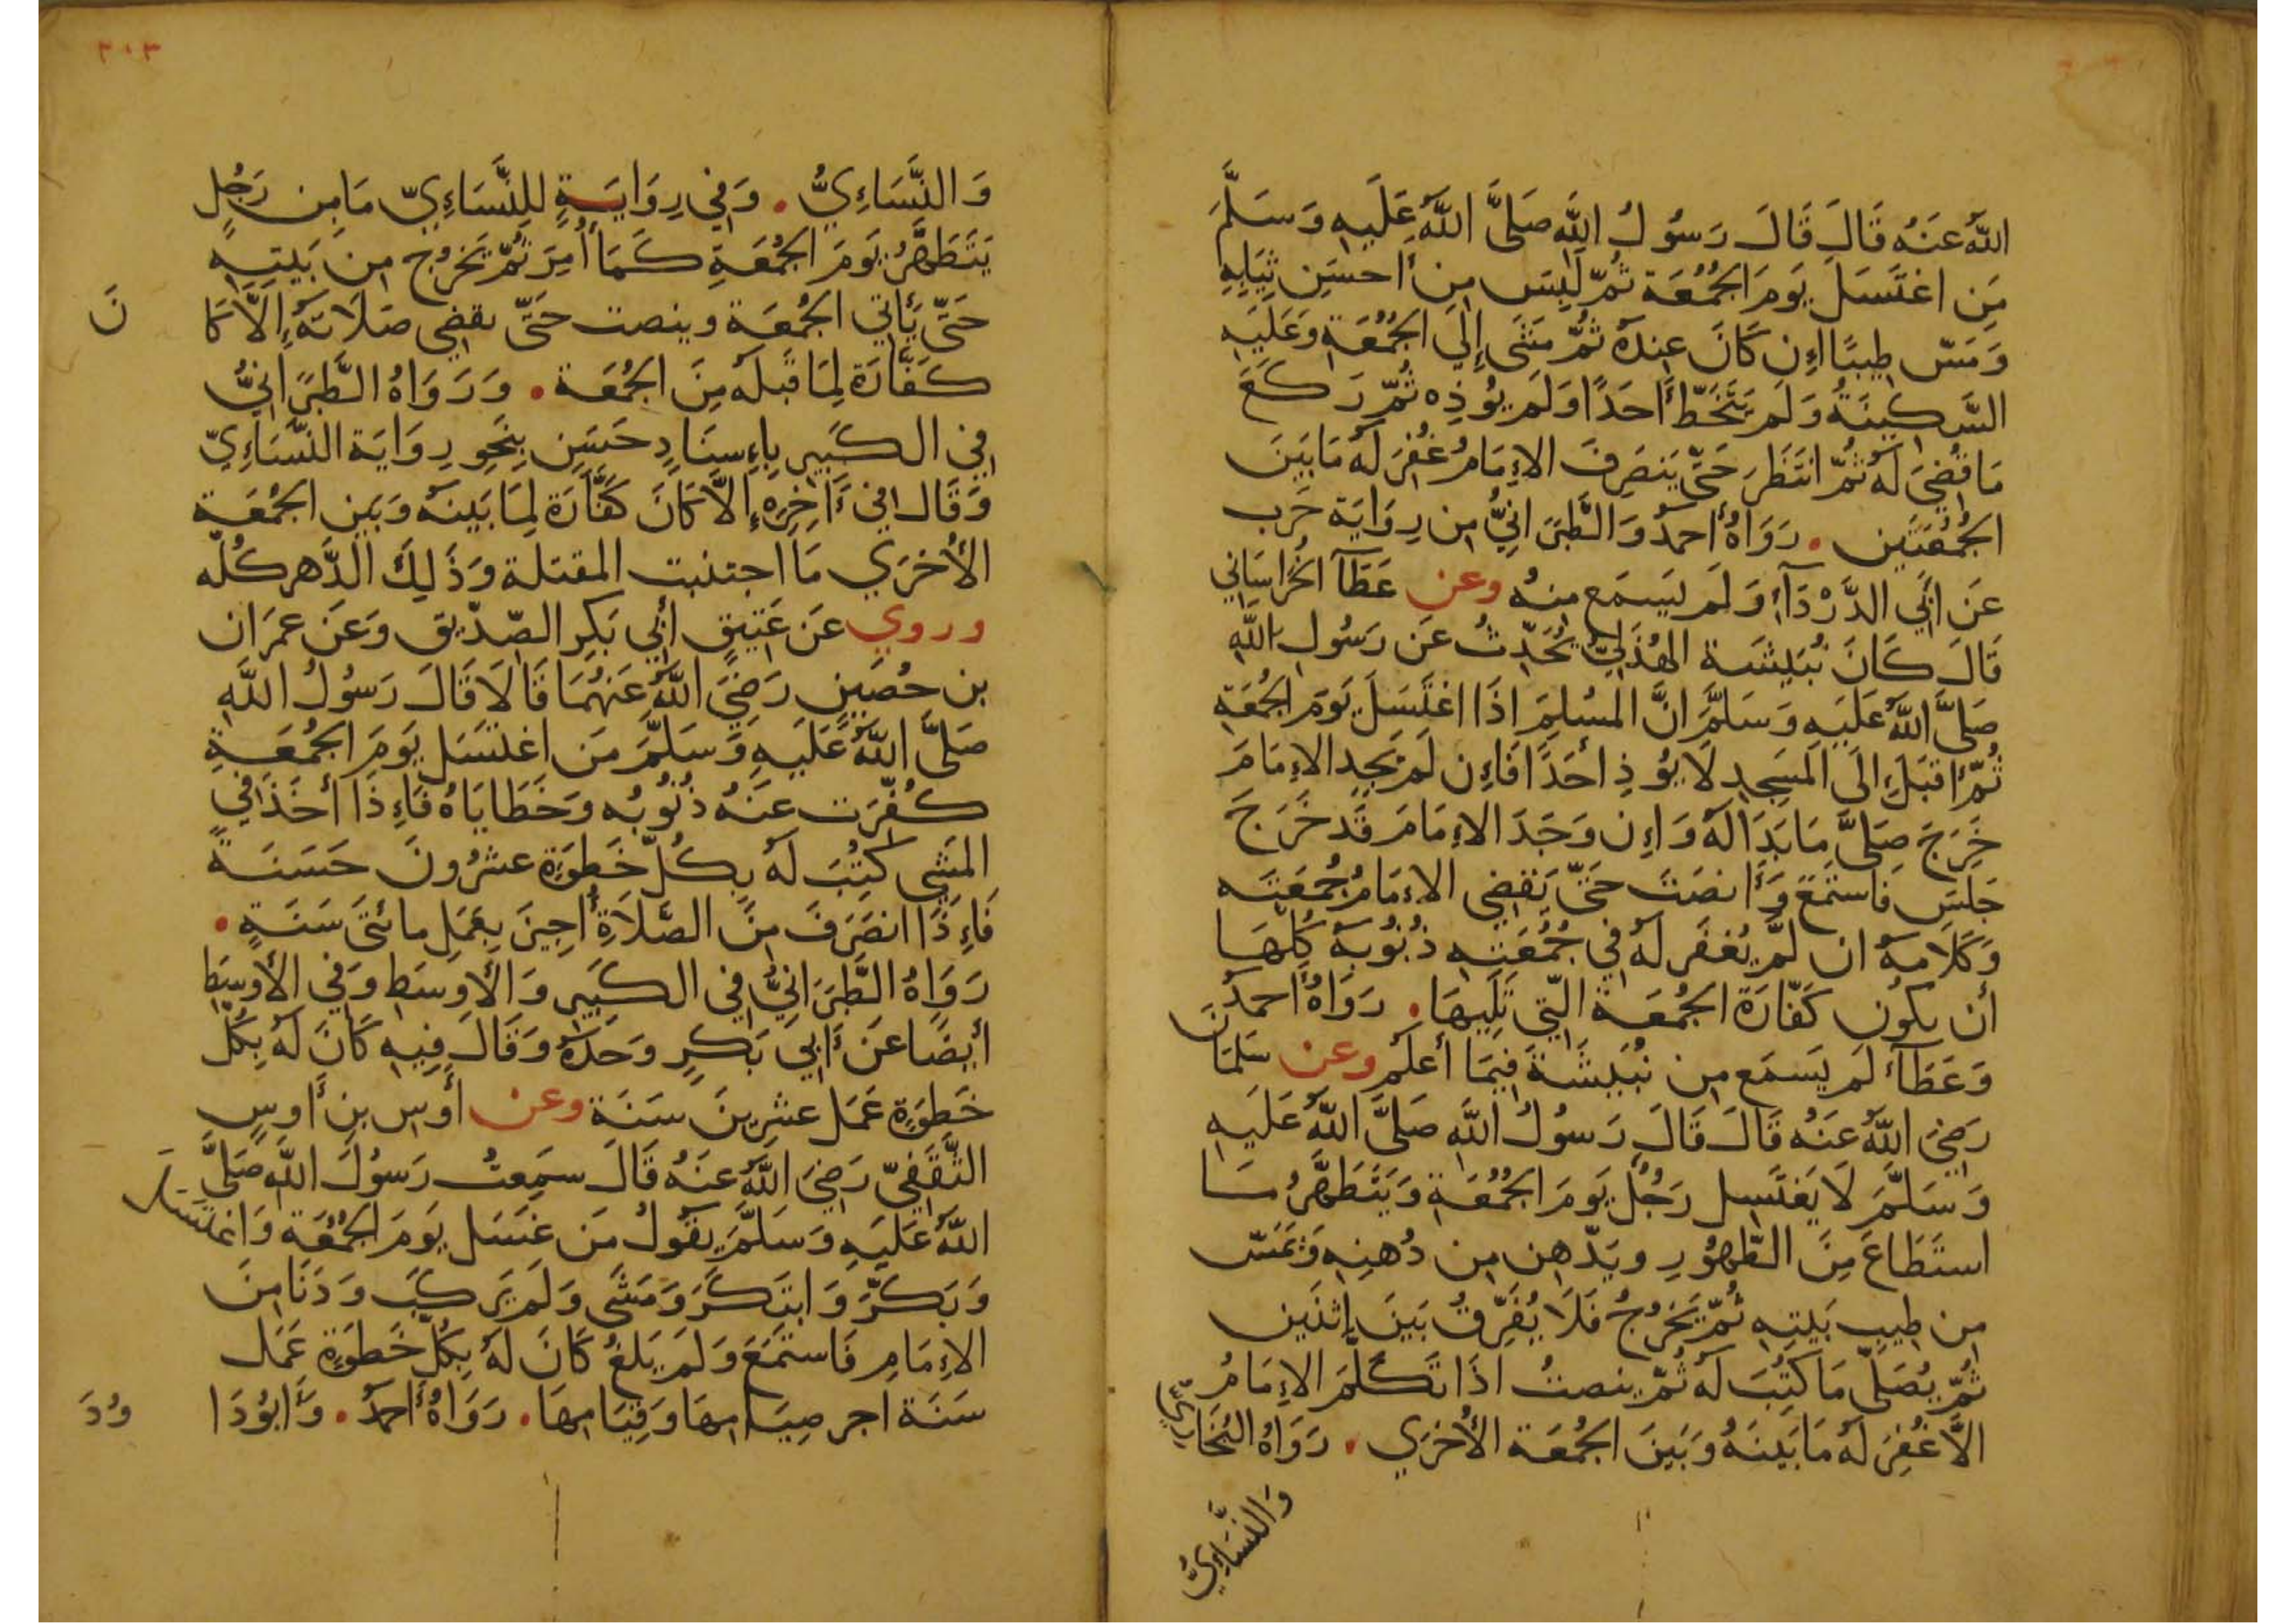 اللّٰهُ عَنَهُ قَالَ قَالَ رَسُولُ اللَّهِ صَلَّى اللَّهُ عَلَيهِ وَسَلَّمَ
مَن اغتَسَلَ يَومَ الجُمُعَة ثُمّ لَبِسَ مِن أحسَنِ ثِيَابِهِ
وَمَسّ طِيبًا إن كَانَ عِندَهُ ثُمّ مَشَى إِلَى الجُمُعَةِ وَعَلَيهِ
السَّكِينَةُ وَلَم يَتَخَطّ أَحَدًا وَلَم يُؤذِه ثُمّ رَكَعَ
مَا قُضِيَ لَهُ ثُمّ انتَظَرَ حَتَّى يَنصَرِفَ الإمَامُ غُفِرَ لَهُ مَا بَينَ
الجُمُعَتَين . رَوَاهُ أحمدُ وَالطَّبَرَانِيُّ مِن رِوَايَة حَرب
عَن أبِي الدَّرْدَآءِ وَلَم يَسمَع مِنهُ وعن عَطَآ الخُرَاسَانِي
قَالَ كَانَ نُبَيشَة الهُذَلِيُّ يُحَدِّثُ عَن رَسُولِ اللَّهِ
صَلَّى اللَّهُ عَلَيهِ وَسَلَّمَ انَّ المُسلِمَ اذَا اغتَسَلَ يَومَ الجُمُعَةِ
ثُمّ أقبَلَ الَى المَسجِدِ لَا يُؤذِ أحَدًا فَإن لَم يَجِدِ الإمَامَ
خَرَجَ صَلَّى مَا بَدَا لَهُ وَإن وَجَدَ الإمَامَ قَد خَرَجَ
جَلَسَ فَاستَمَعَ وَأنصَتَ حَتّى يَقضِي الإمَامُ جُمُعَتَه
وَكَلَامَهُ ان لَمّ يُغفَر لَهُ فِي جُمُعَتِهِ ذُنُوبُهُ كُلّهَا
أن يكُون كَفّارَة الجُمُعَة الّتِي تَلِيهَا . رَوَاهُ أحمدُ
وَعَطَآء لَم يَسمَع مِن نُبَيشَةَ فِيمَا أعلَم وعن سَلمَان
رَضِيَ اللَّهُ عَنَهُ قَالَ قَالَ رَسُولُ اللَّهِ صَلَّى اللَّهُ عَلَيهِ
وَسَلَّمَ لَا يَغتَسِل رَجُلٌ يَومَ الجُمُعَةِ وَيَتَطَهَّرُ مَا
استَطَاعَ مِنَ الطّهُورِ ويَدّهِن مِن دُهنِهِ وَيَمَسّ
مِن طِيبِ بَيتِهِ ثُمّ يَخرُجُ فَلَا يُفَرِّقُ بَينَ إثنَين
ثُمّ يُصَلّي مَا كُتِبَ لَهُ ثُمّ ينصتُ اذَا تَكَلَّمَ الإمَامُ
الاَّ غُفِرَ لَهُ مَا بَينَهُ وَبَينَ الجُمُعَة الأُخرَي . رَوَاهُ البُخَارِيُّ
وَالنَّسَاءِيُّ
٣١٣
وَالنَّسَاءِيُّ . وَفِي رِوَايَةٍ لِلنَّسَاءِيّ مَا مِن رَجُلٍ
يَتَطَهَّرُ يَومَ الجُمُعَةِ كَمَا أُمِرَ ثُمّ يَخرُج مِن بَيتِهِ
حَتَّى يَأتِي الجُمُعَة وينصت حَتَّى يقضِي صَلَاتَهُ إلَّا كَانَ
كَفَّارَة لِمَا قَبلَهُ مِنَ الجُمُعَة . وَرَوَاهُ الطَّبَرَانِيُّ
فِي الكَبِيرِ بِإسنَادٍ حَسَنٍ بِنَحوِ رِوَايَة النَّسَاءِيّ
وَقَالَ فِي آخِرِهِ إلَّا كَانَ كَفَّارَة لِمَا بَينَهُ وَبَين الجُمُعَة
الأُخرَي مَا اجتنبت المقتلة وَذَلِكَ الدَّهر كُلّه
وروي عَن عَتِيقٍ أبِي بَكرِ الصّدّيق وَعَن عمرَان
بن حُصَينٍ رَضِيَ اللَّهُ عَنهُمَا قَالَا قَالَ رَسُولُ اللَّهِ
صَلَّى اللَّهُ عَلَيهِ وَسَلَّمَ مَن اغتَسَلَ يَومَ الجُمُعَةِ
كُفِّرَت عَنهُ ذُنُوبُه وَخَطَايَاهُ فَإذَا أخَذَ فِي
المَشي كُتِبَ لَهُ بِكُلّ خَطوَةٍ عشرُونَ حَسَنَةً
فَإِذَا انصَرَفَ مِنَ الصَّلَاةِ أُجِيزَ بِعَمَلِ مائتَى سَنَةٍ .
رَوَاهُ الطَّبَرَانِيُّ فِي الكَبِيرِ وَالأَوسَطِ وَفِي الأَوسَطِ
أيضًا عَن أبِي بَكرٍ وَحدَهُ وَقَال فِيهِ كَانَ لَهُ بِكُلّ
خَطوَةٍ عَمَل عشرِينَ سَنَة وعن أَوسِ بنِ أَوسٍ
الثَّقَفِيّ رَضِيَ اللَّهُ عَنَهُ قَالَ سَمِعتُ رَسُولَ اللَّهِ صَلَّى
اللَّهُ عَلَيهِ وَسَلَّمَ يقُولُ مَن غَسَل يَومَ الجُمُعَة وَاغتَسَلَ
وَبَكَّرَ وَابتَكَرَ وَمَشَى وَلَم يَركَب وَدَنَا مِنَ
الإمَامِ فَاستَمَعَ وَلَم يَلغُ كَانَ لَهُ بِكُلّ خَطوَةٍ عَمَل
سَنَة اجر صِيَامِهَا وَقِيَامِهَا . رَوَاهُ أحمدُ . وَأبُودَاوُدَ